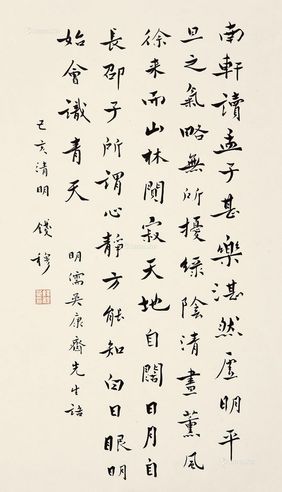 南軒讀孟子甚樂湛然虛明平
旦之氣略無所擾綠陰清晝薰風
徐來而山林闃寂天地自闊日月自
長邵子所謂心靜方能知白日眼明
始會識青天
明儒吳康齋先生語
己亥清明 錢穆